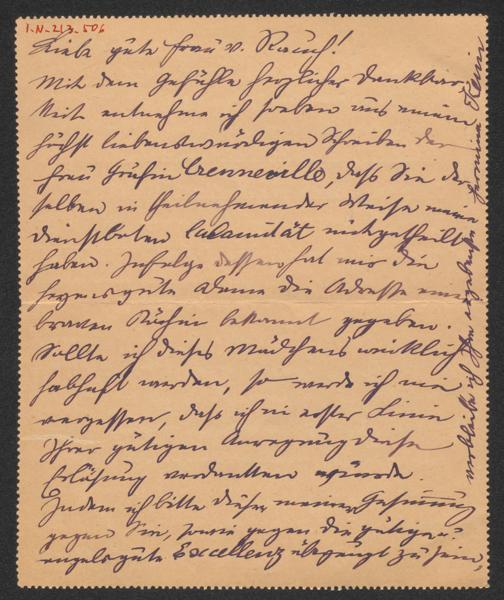 I.N. 213.506
Liebe gute Frau v. Rauch!
Mit dem Gefühle herzlicher Dankbar-
keit entnehme ich soeben aus einem
höchst liebenswürdigen Schreiben der
Frau Gräfin Crenneville, daß Sie der-
selben in theilnehmender Weise meine
Dienstboten Calamität mitgetheilt
haben. Infolge dessen hat mir die
herzensgute Dame die Adresse einer
braven Köchin bekannt gegeben.
Sollte ich dieses Mädchens wirklich
habhaft werden, so werde ich nie
vergessen, daß ich in erster Linie
Ihrer gütigen Anregung diese
Erlösung verdanken würde.
Indem ich bitte dieser meiner Gesinnung
gegen Sie, sowie gegen die gütige
engelsgute Excellenz überzeugt zu sein,
verbleibe ich Ihre ergebenste Hermine